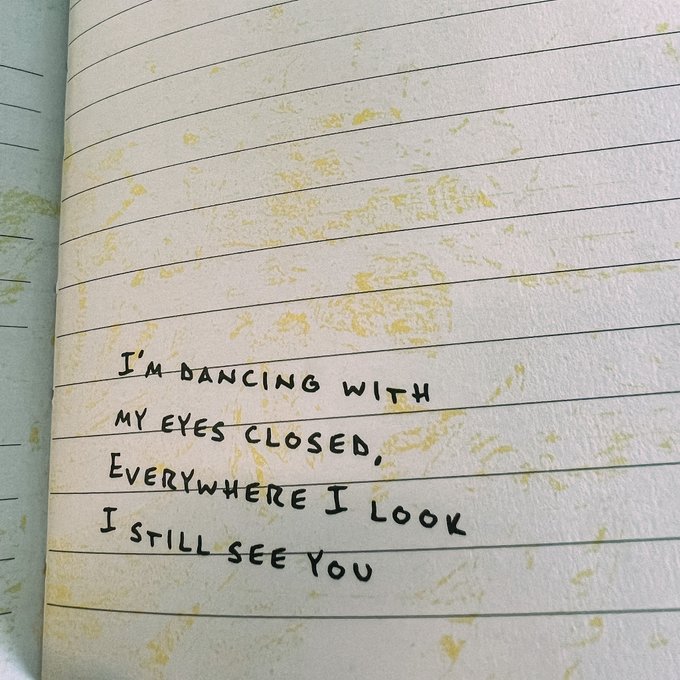 I'M DANCING WITH
MY EYES CLOSED,
EVERYWHERE I LOOK
I STILL SEE YOU